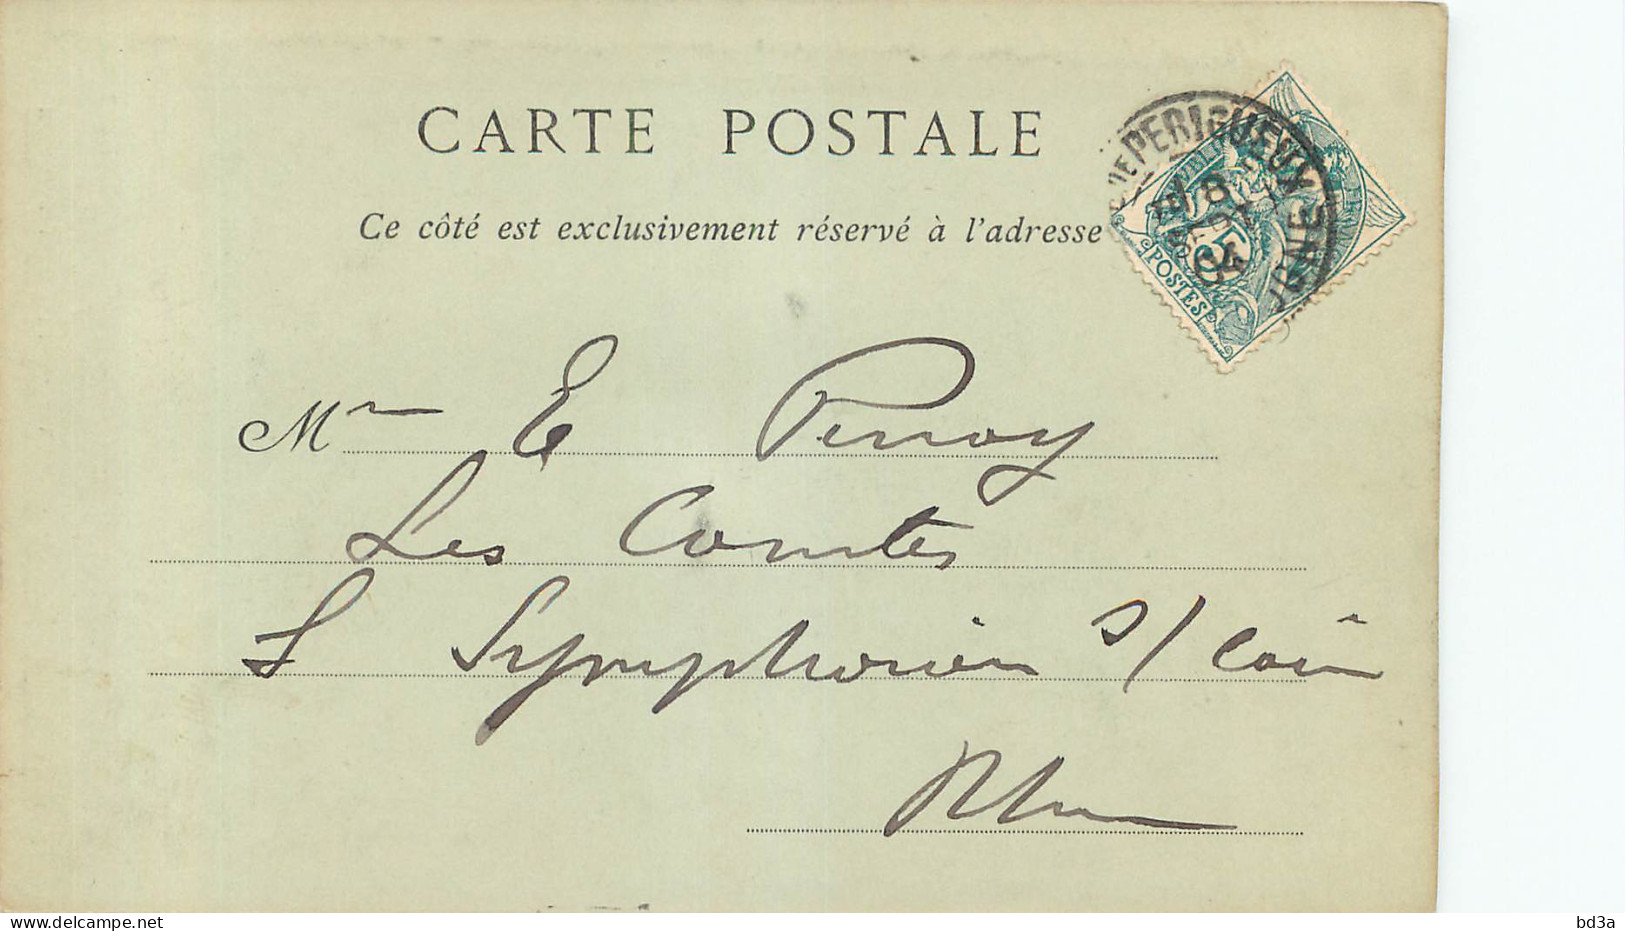 CARTE POSTALE
Ce côté est exclusivement réservé à l'adresse
PERIGUEUX
8
04
5
POSTES
M
E Perroy
Les Comtes
S Symphorien s/ Coin
Rhone
delcampe.net
bd3a